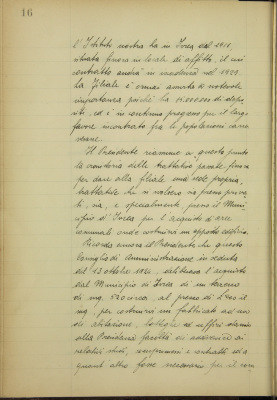 16
l'Istituto nostro ha in Ivrea dal 1911,
situata finora in locale di affitto, il cui
contratto andrà in scadenza nel 1929.
La filiale è ormai arrivata a notevole
importanza poichè ha di depo
siti, ed è in continuo progresso per il largo
favore incontrato fra le popolazioni cana
vesane.
Il Presidente riassume a questo punto
la cronistoria delle trattative svolte finora
per dare alla filiale una sede propria,
trattative che si svolsero sia presso priva
ti, sia, e specialmente, presso il Muni
cipio d'Ivrea per l'acquisto di area
comunale onde costruirvi un apposito edificio.
Ricorda ancora il Presidente che questo
Consiglio di Amministrazione in seduta
del 13 ottobre 1921, deliberava l'acquisto
dal Municipio di Ivrea di un terreno
di mq. circa al prezzo di L. il
mq. per costruirvi un fabbricato ad uso
di abitazione, botteghe ed uffici dando
alla Presidenza facoltà di addivenire ai
relativi studi, convenzioni e contratti ed a
quant'altro fosse necessario per il com